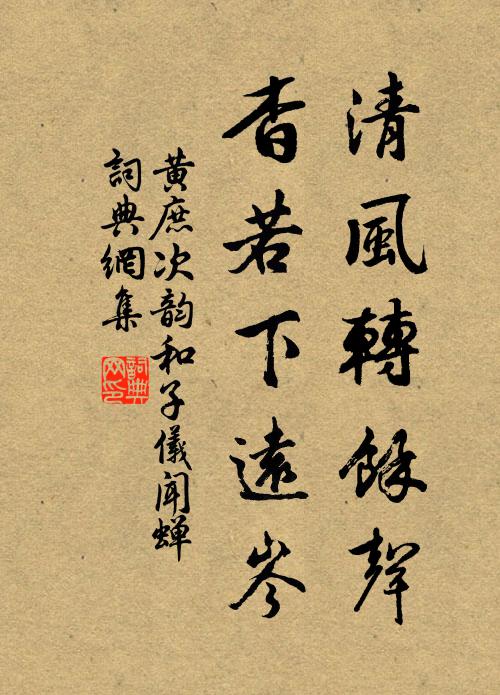 清風轉餘聲
杳若下遠岑
黃庶次韵和子儀闻蝉
詞典網集
詞典
网印